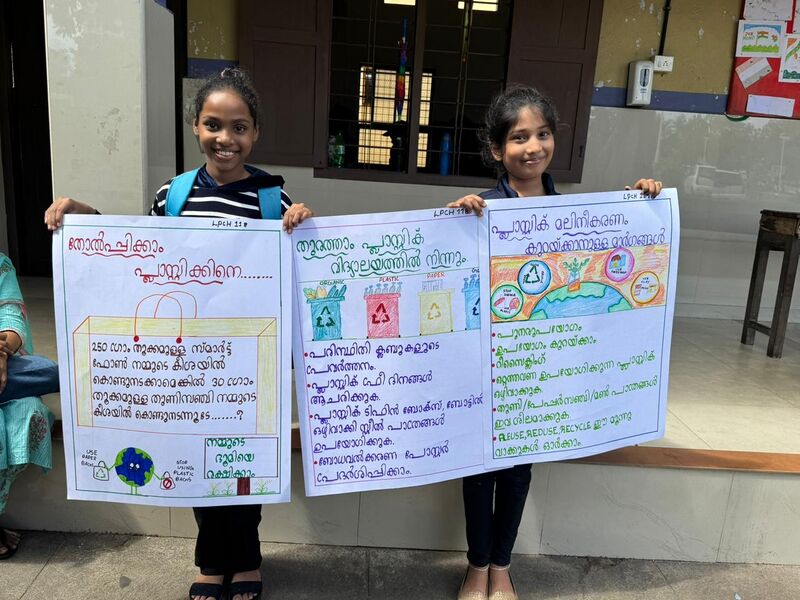 LPCH 118
തോൽപ്പിക്കാം
പ്ലാസ്റ്റിക്കിനെ.......
250 ഗ്രാം തൂക്കമുള്ള സ്മാർട്ട്
ഫോൺ നമ്മുടെ കീശയിൽ
കൊണ്ടുനടക്കാമെങ്കിൽ 30 ഗ്രാം
തൂക്കമുള്ള തുണിസഞ്ചി നമ്മുടെ
കീശയിൽ കൊണ്ടുനടന്നൂടേ......?
USE
PAPER
BAGS
STOP
USING
PLASTIC
BAGS
നമ്മുടെ
ഭൂമിയെ
രക്ഷിക്കാം
LPCH 118
തുരത്താം പ്ലാസ്റ്റിക്
വിദ്യാലയത്തിൽ നിന്നും.
ORGANIC
PLASTIC
PAPER
പരിസ്ഥിതി ക്ലബുകളുടെ
പ്രവർത്തനം.
പ്ലാസ്റ്റിക് ഫ്രീ ദിനങ്ങൾ
ആചരിക്കുക.
പ്ലാസ്റ്റിക് ടിഫിൻ ബോക്സ്, ബോട്ടിൽ
ഒഴിവാക്കി സ്റ്റീൽ പാത്രങ്ങൾ
ഉപയോഗിക്കുക.
ബോധവൽക്കരണ പോസ്റ്റർ
പ്രദർശിപ്പിക്കാം.
LPCH 11
പ്ലാസ്റ്റിക് മലിനീകരണം
കുറയ്ക്കാനുള്ള മാർഗങ്ങൾ
പുനരുപയോഗം
ഉപയോഗം കുറയ്ക്കാം.
റീസൈക്ലിങ്
ഒറ്റത്തവണ ഉപയോഗിക്കുന്ന പ്ലാസ്റ്റിക്
ഒഴിവാക്കുക.
തുണി/പേപ്പർസഞ്ചി/മൺ പാത്രങ്ങൾ
ഇവ ശീലമാക്കുക.
REUSE, REDUSE, RECYCLE ഈ മൂന്നു
വാക്കുകൾ ഓർക്കാം.